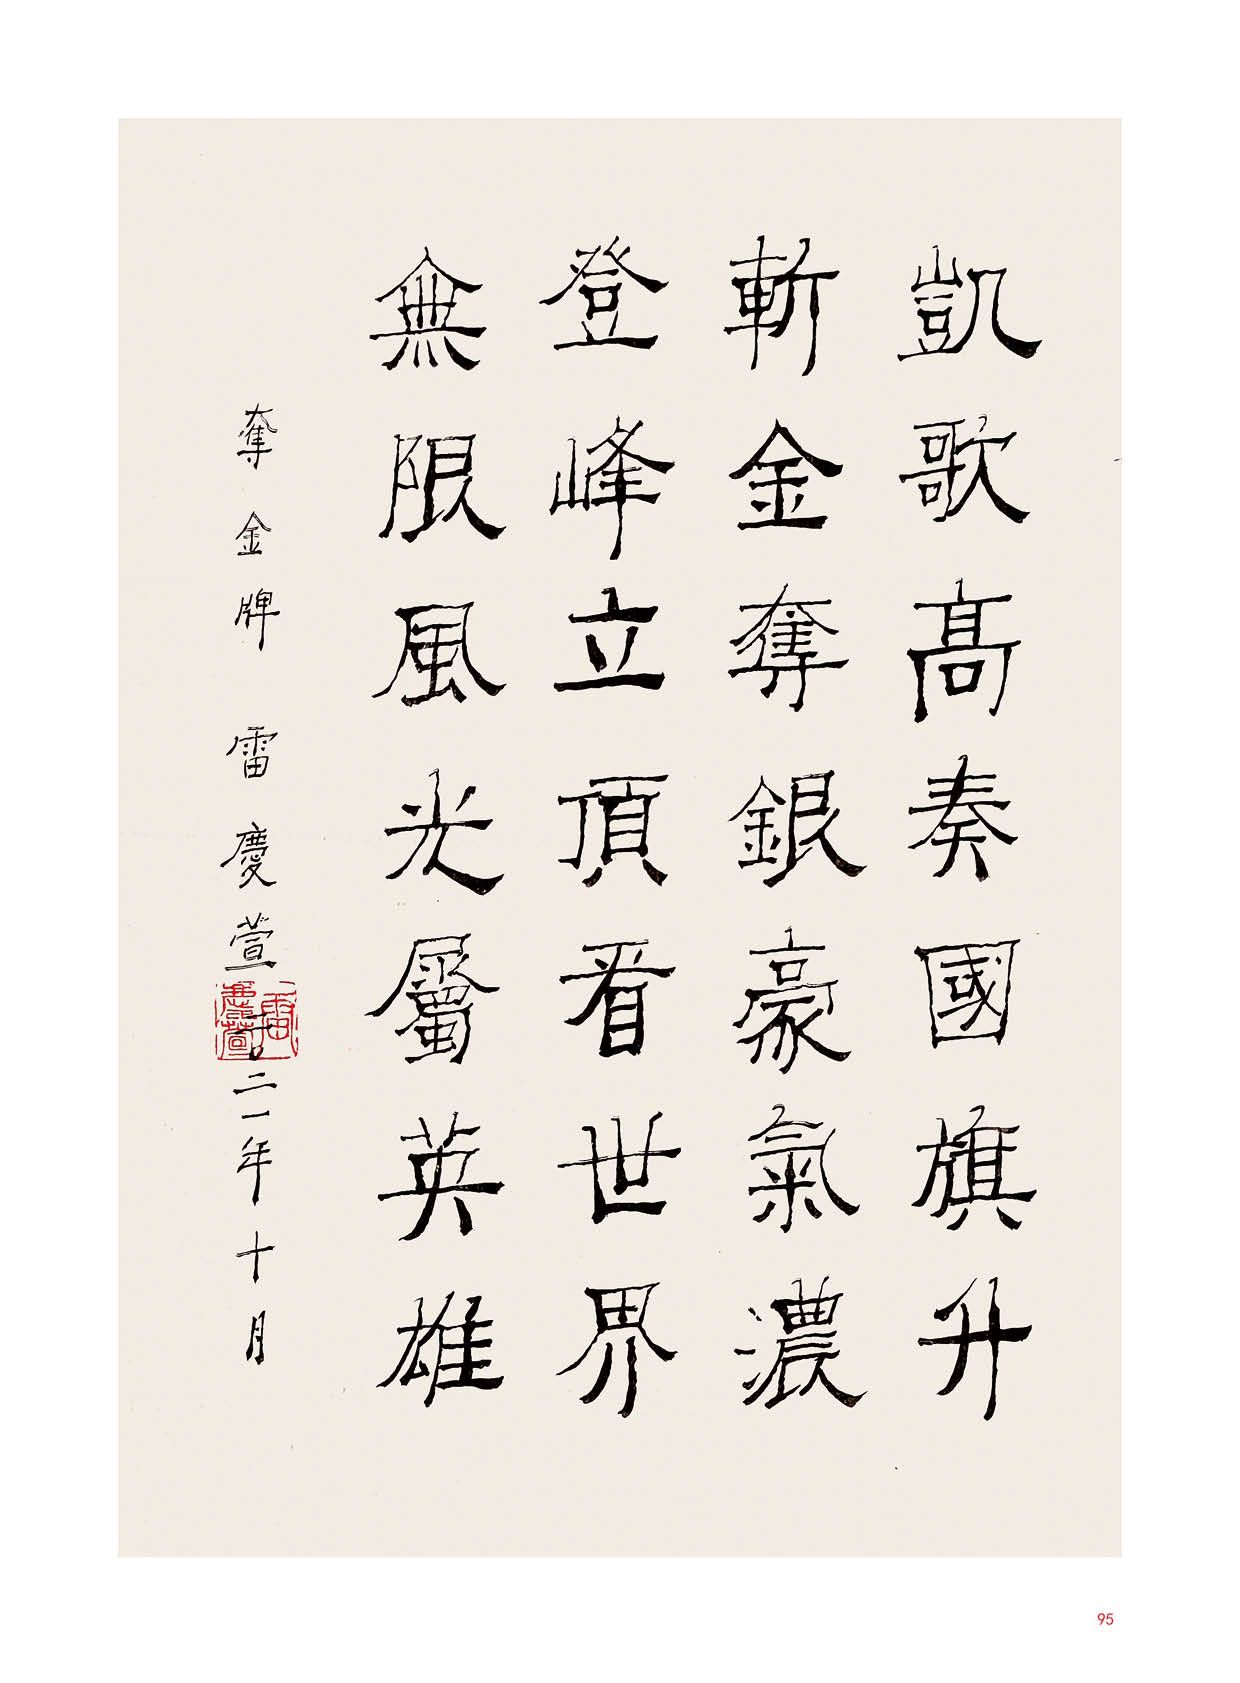 凱歌高奏國旗升
斬金奪銀豪氣濃
登峰立頂看世界
無限風光屬英雄
奪金牌 雷慶萱 二〇二一年十月
雷慶萱
95